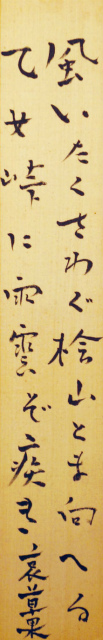 風いたくさわぐ桧山とま向へる
乙女峠に雨雲ぞ疾き 哀草果